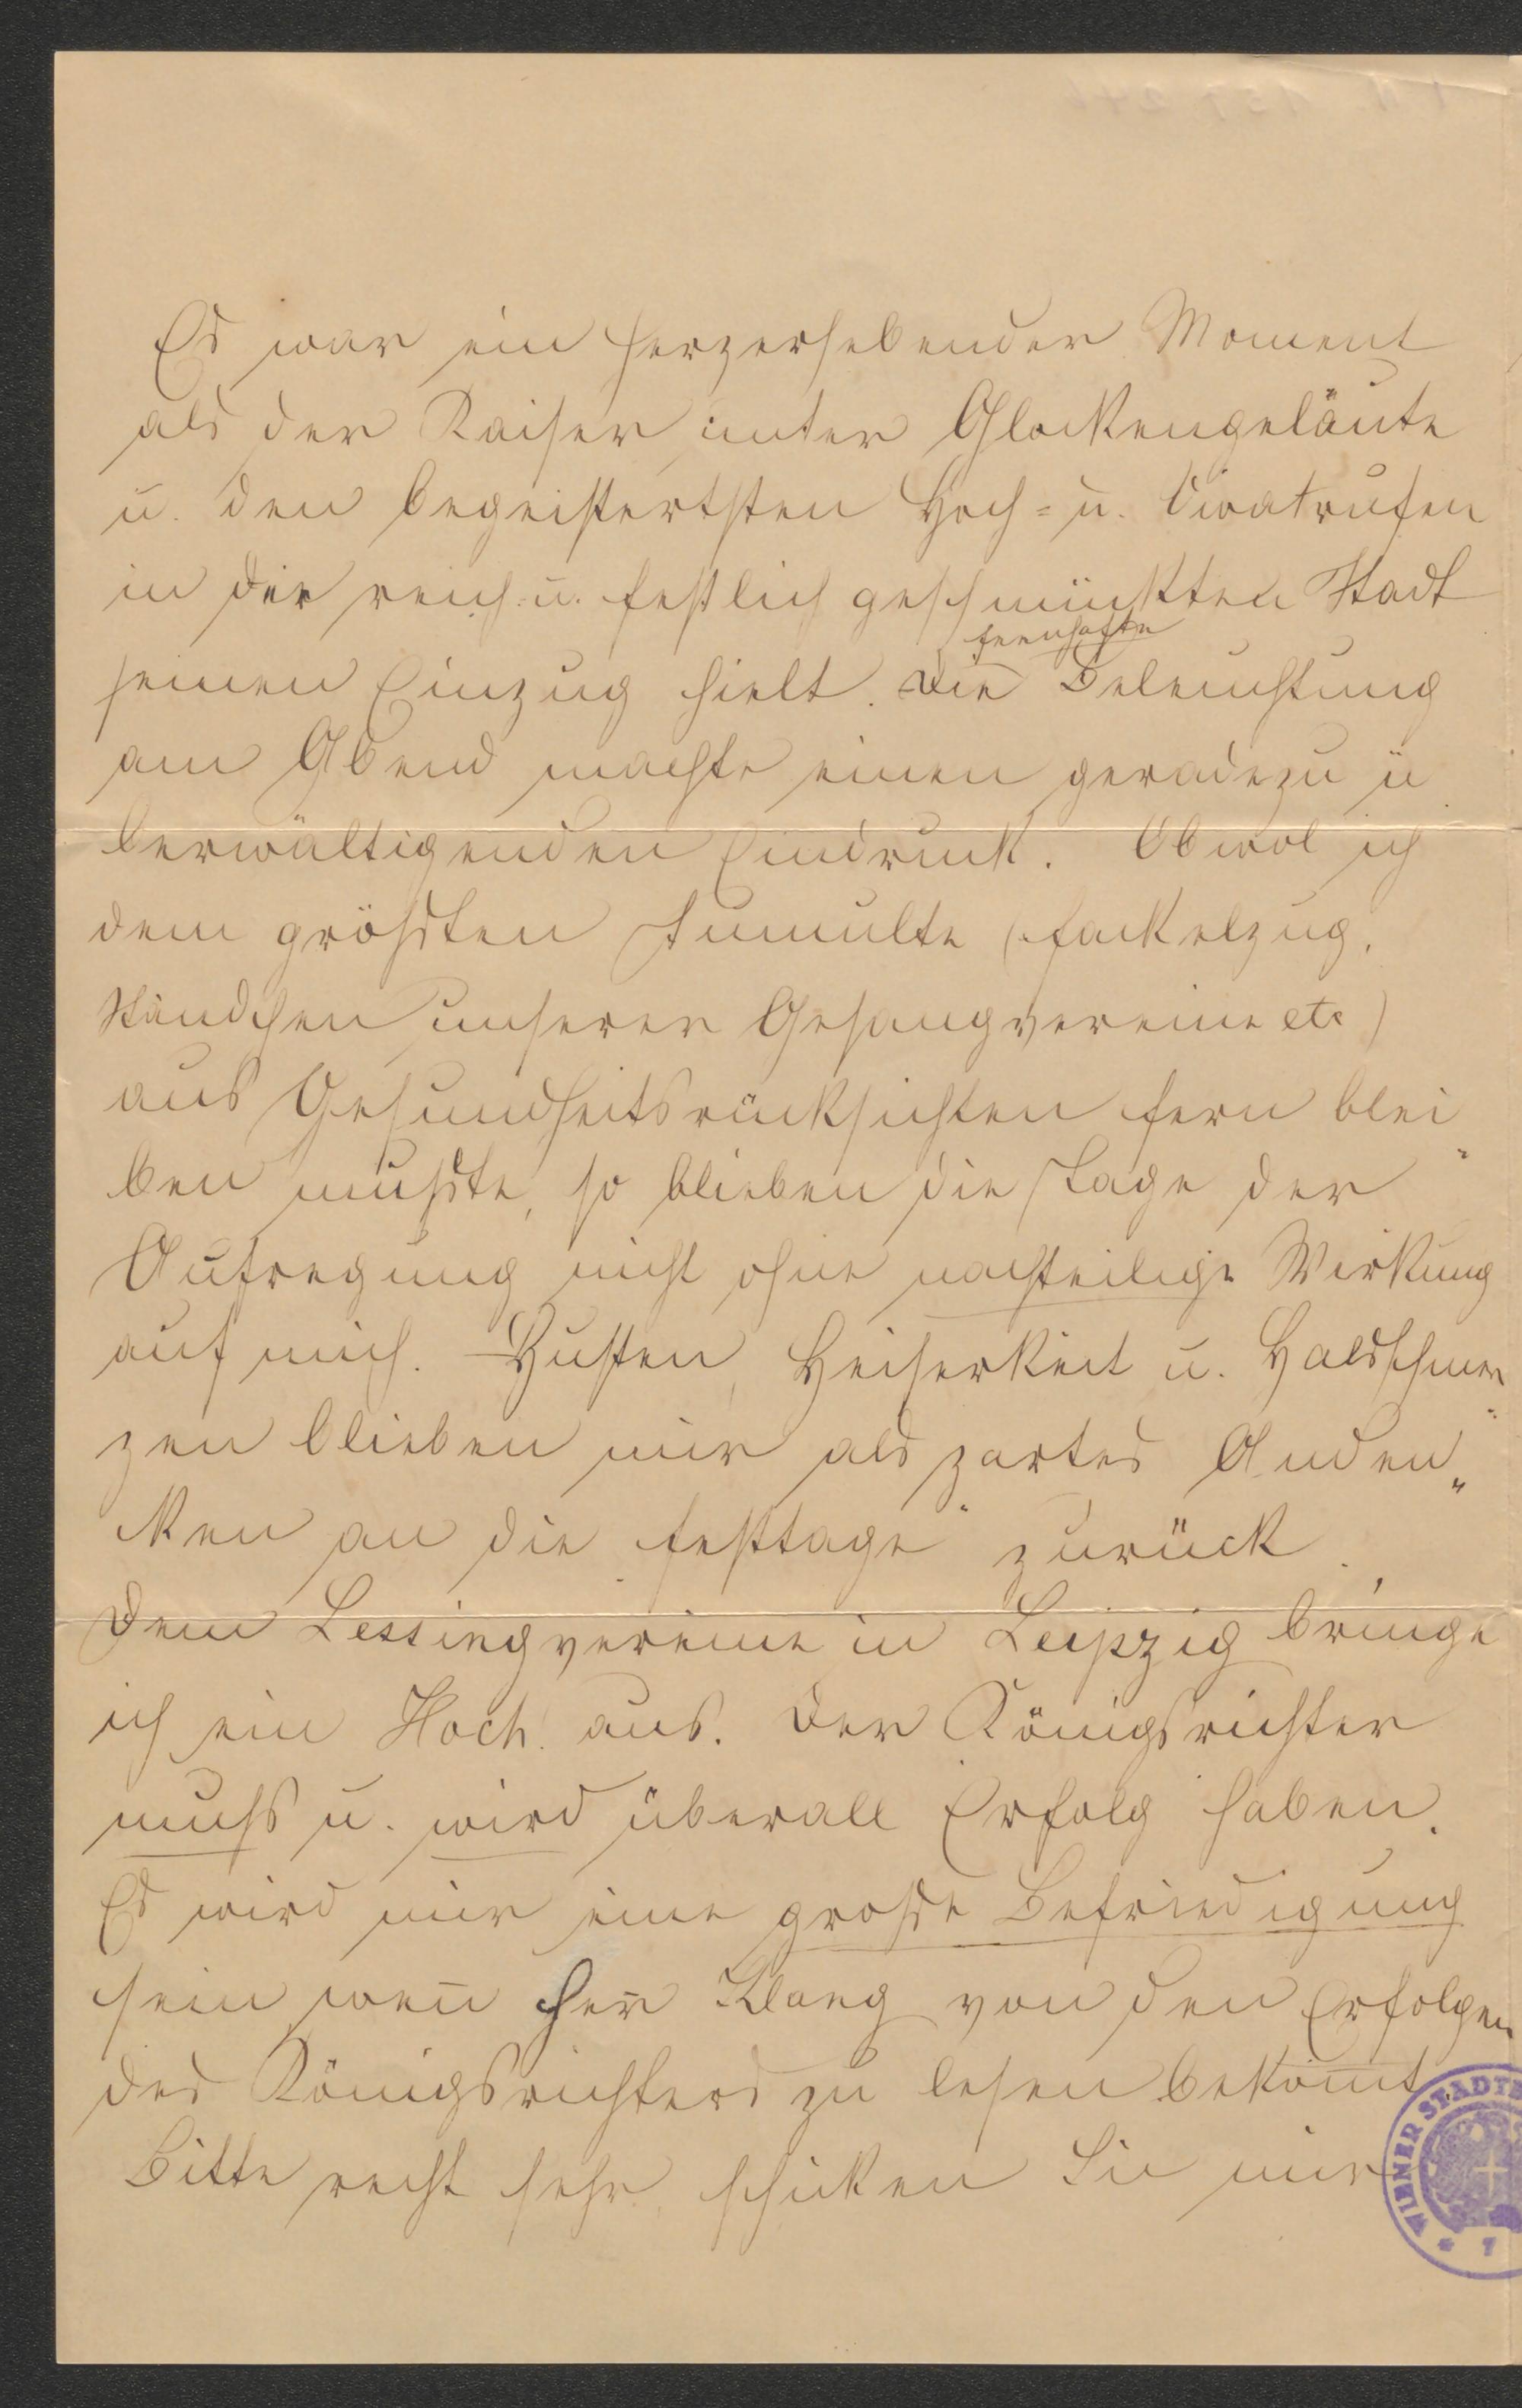 Es war ein herzerhebender Moment
als der Kaiser unter Glockengeläute
u. den begeistertsten Hoch- u. Vivatrufen
in die reich- u. festlich geschmückten Stadt
feenhafte
seinen Einzug hielt. Die Beleuchtung
am Abend machte einen geradezu ü
berwältigenden Eindruck. Obwol ich
dem größten Tumulte (Fackelzug,
Ständchen unserer Gesangvereine etc)
aus Gesundheitsrücksichten fern blei
ben mußte, so blieben die Tage der
Aufregung nicht ohne nachteilige Wirkung
auf mich. Husten, Heiserkeit u. Halsschmer
zen blieben mir als zartes „Anden„
ken an die Festtage“ zurück.
Dem Lessingvereine in Leipzig bringe
ich ein Hoch! aus. Der Königsrichter
muß u. wird überall Erfolg haben.
Es wird mir eine große Befriedigung
sein wen̅ Her̅ Klang von den Erfolgen
des Königsrichters zu lesen bekom̅t
Bitte recht sehr, schicken Sie mir
WIENER STADTB